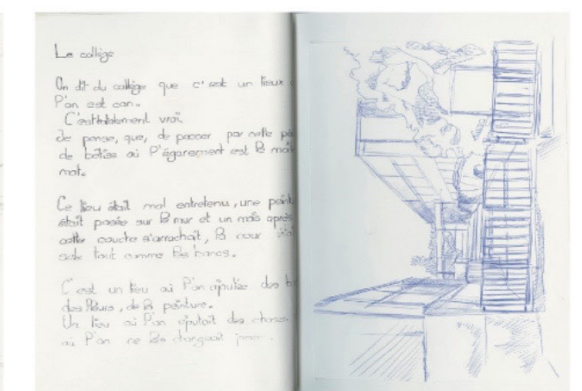 Le collège
On dit du collège que c'est un lieux
l'on est con.
C'est tristement vrai
Je pense, que, de passer par cette pé
de bêtise où l'égarement est le maît
mot.
Ce lieu était mal entretenu, une peint
était posée sur le mur et un mois après
cette couche s'arrachait, la cour
sale tout comme les bancs.
C'est un lieu où l'on ajoutée des b
des fleurs, de la peinture.
Un lieu où l'on ajoutait des choses
où l'on ne les changeait